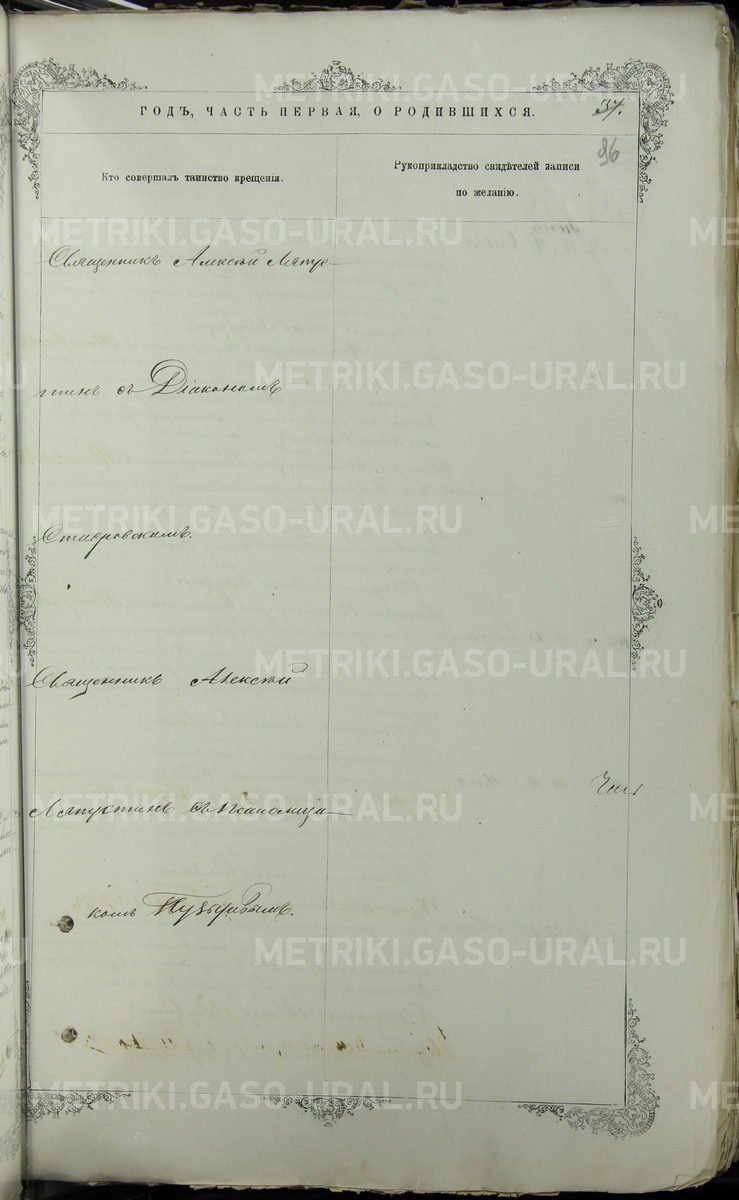 METRIKI.GASO-URAL.RU
ГОДЪ, ЧАСТЬ ПЕРВАЯ, О РОДИВШИХСЯ.
37.
96
Кто совершалъ таинство крещенія.
Рукоприкладство свидѣтелей записи
по желанію.
Священникъ Алексѣй Ляпус-
тинъ съ Діакономъ
Священникъ Алексѣй
Ляпустинъ съ псаломщи-
комъ